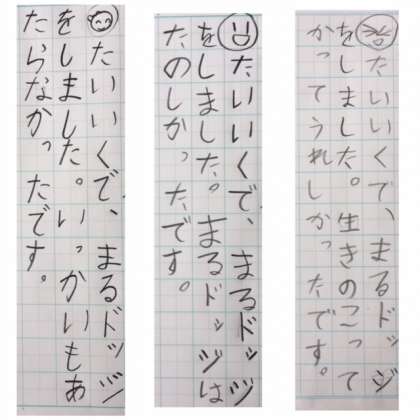 たいいくで、まるドッジ
をしました。生きのこって
かってうれしかったです。
たいいくで、まるドッジ
をしました。まるドッジは
たのしかったです。
たいいくで、まるドッジ
をしました。いっかいもあ
たらなかったです。